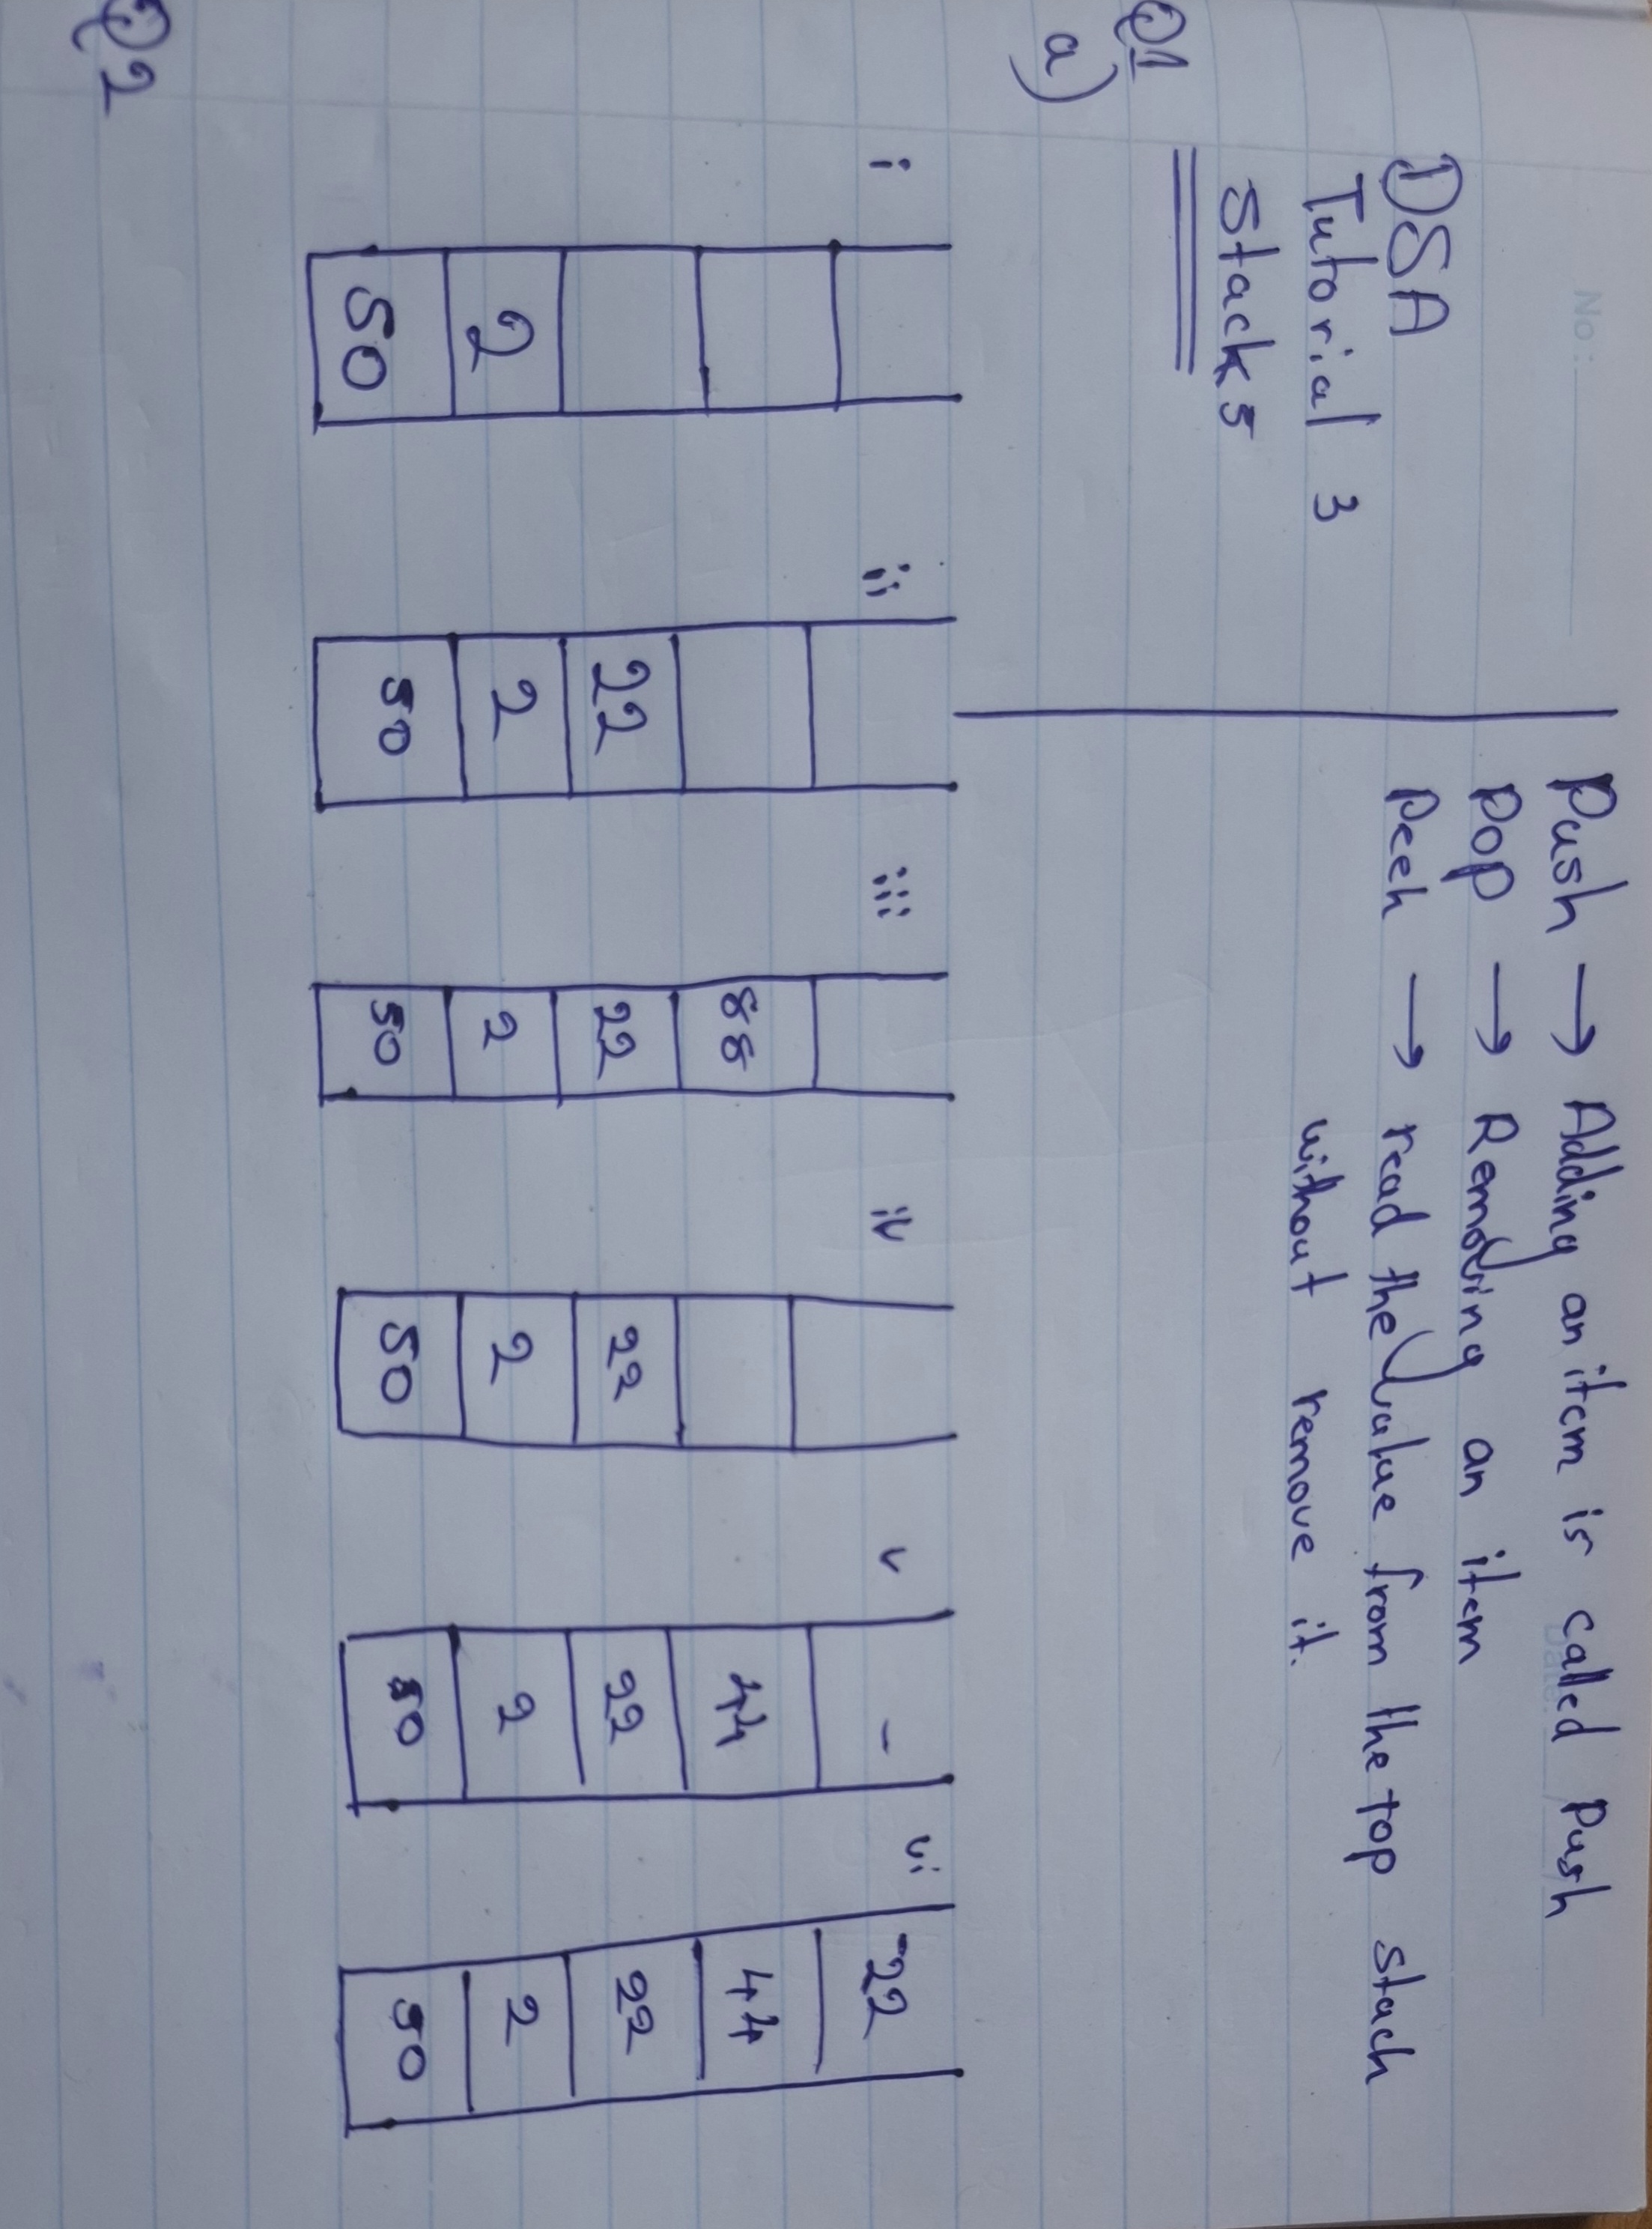 No:
Date:
DSA
Tutorial 3
Stacks
Push → Adding an item is called Push
Pop → Removing an item
Peek → read the value from the top stack
without remove it.
Q1
a)
i
2
50
ii
22
2
50
iii
88
22
2
50
iv
22
2
50
v
-
44
22
2
50
vi
-22
44
22
2
50
Q2